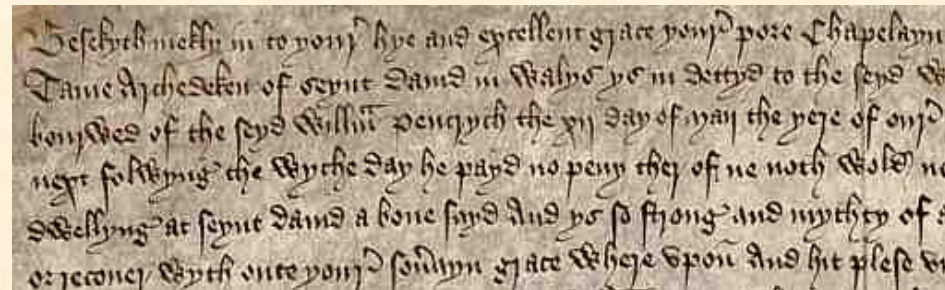 Besekyth mekly in to your hye and excellent grace your pore Chapelayn
Tame Archedeken of seynt David in Walys ys in dettyd to the seyd W
borwed of the seyd Willm Pencrych the xij day of may the yere of our
next folwyng the wyche day he payd no peny ther of ne noth wold
dwellyng at seynt david a bove sayd And ys so strong and myghty of
or recover wyth oute your soverayn grace where upon And hit plese